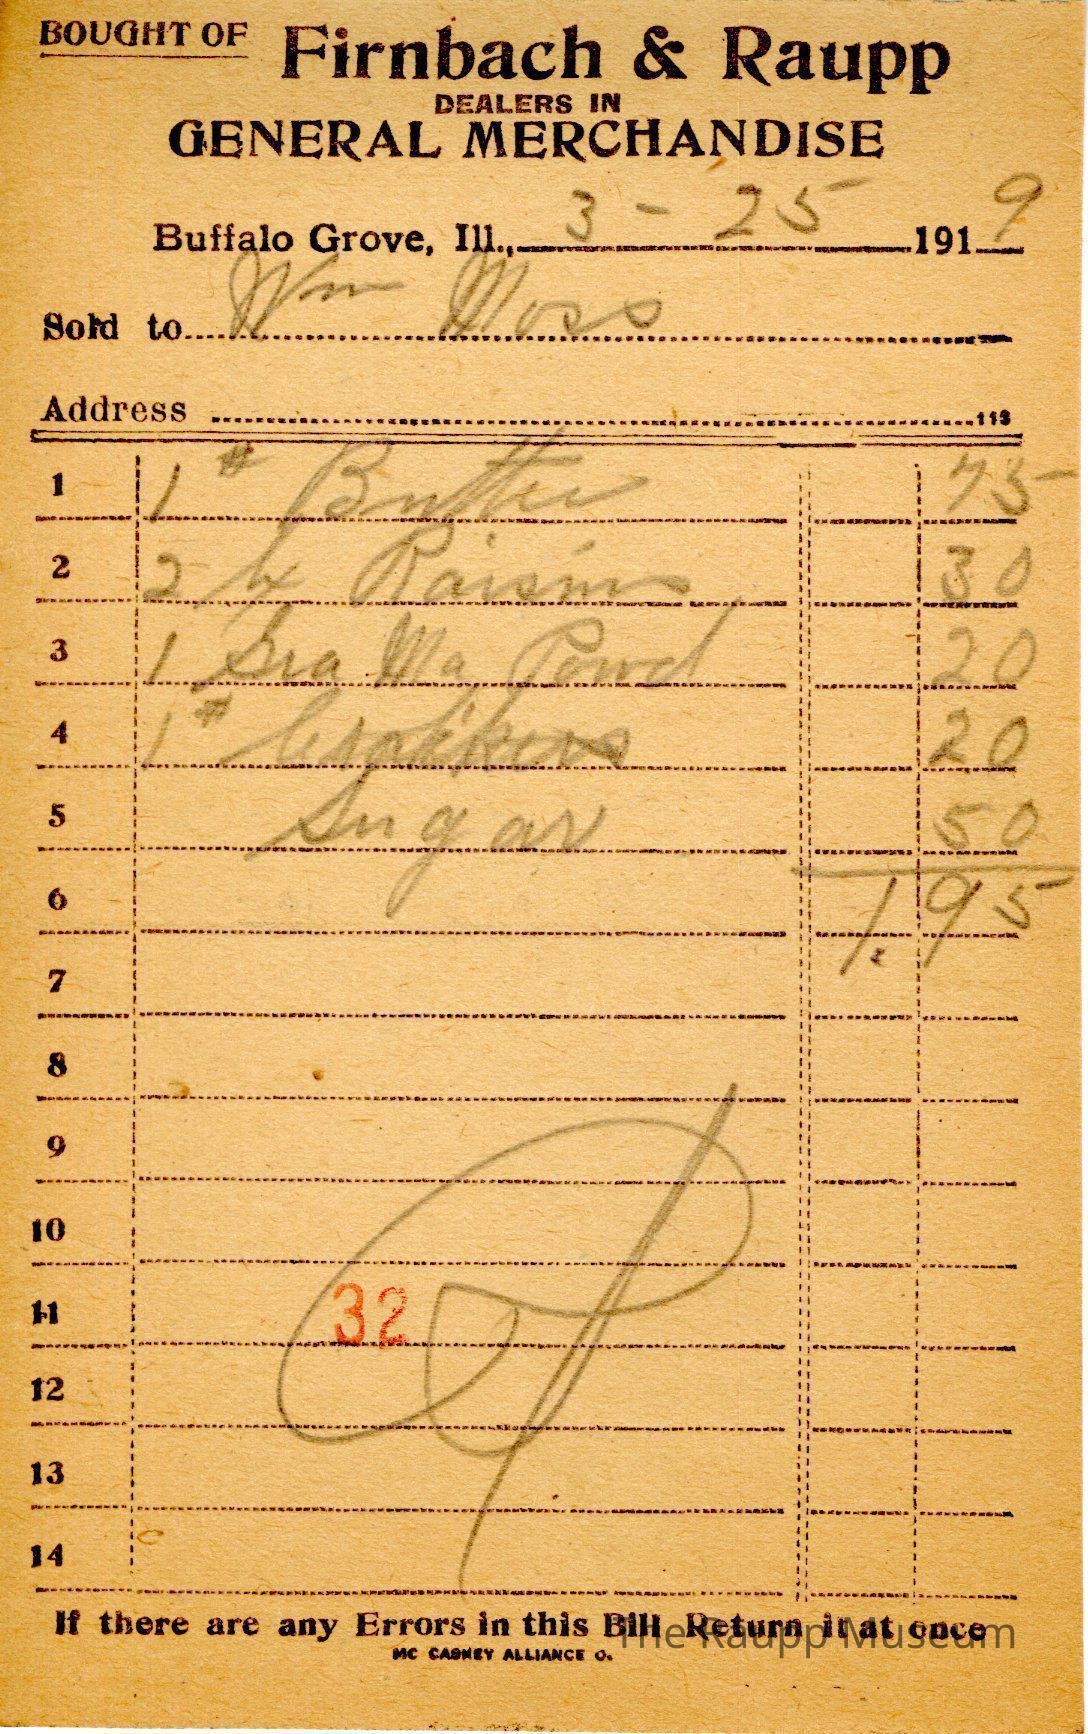 BOUGHT OF Firnbach & Raupp
DEALERS IN
GENERAL MERCHANDISE
Buffalo Grove, Ill., 3 - 25 1919
Sold to Wm Moss
Address 113
1 1 # Butter 75
2 2 Raisins 30
3 1 Gra Ma Powd 20
4 1 # Crackers 20
5 Sugar 50
6 1.95
7
8
9
10
11 32
12
13
14
If there are any Errors in this Bill Return it at once
The Raupp Museum
MC CASKEY ALLIANCE O.